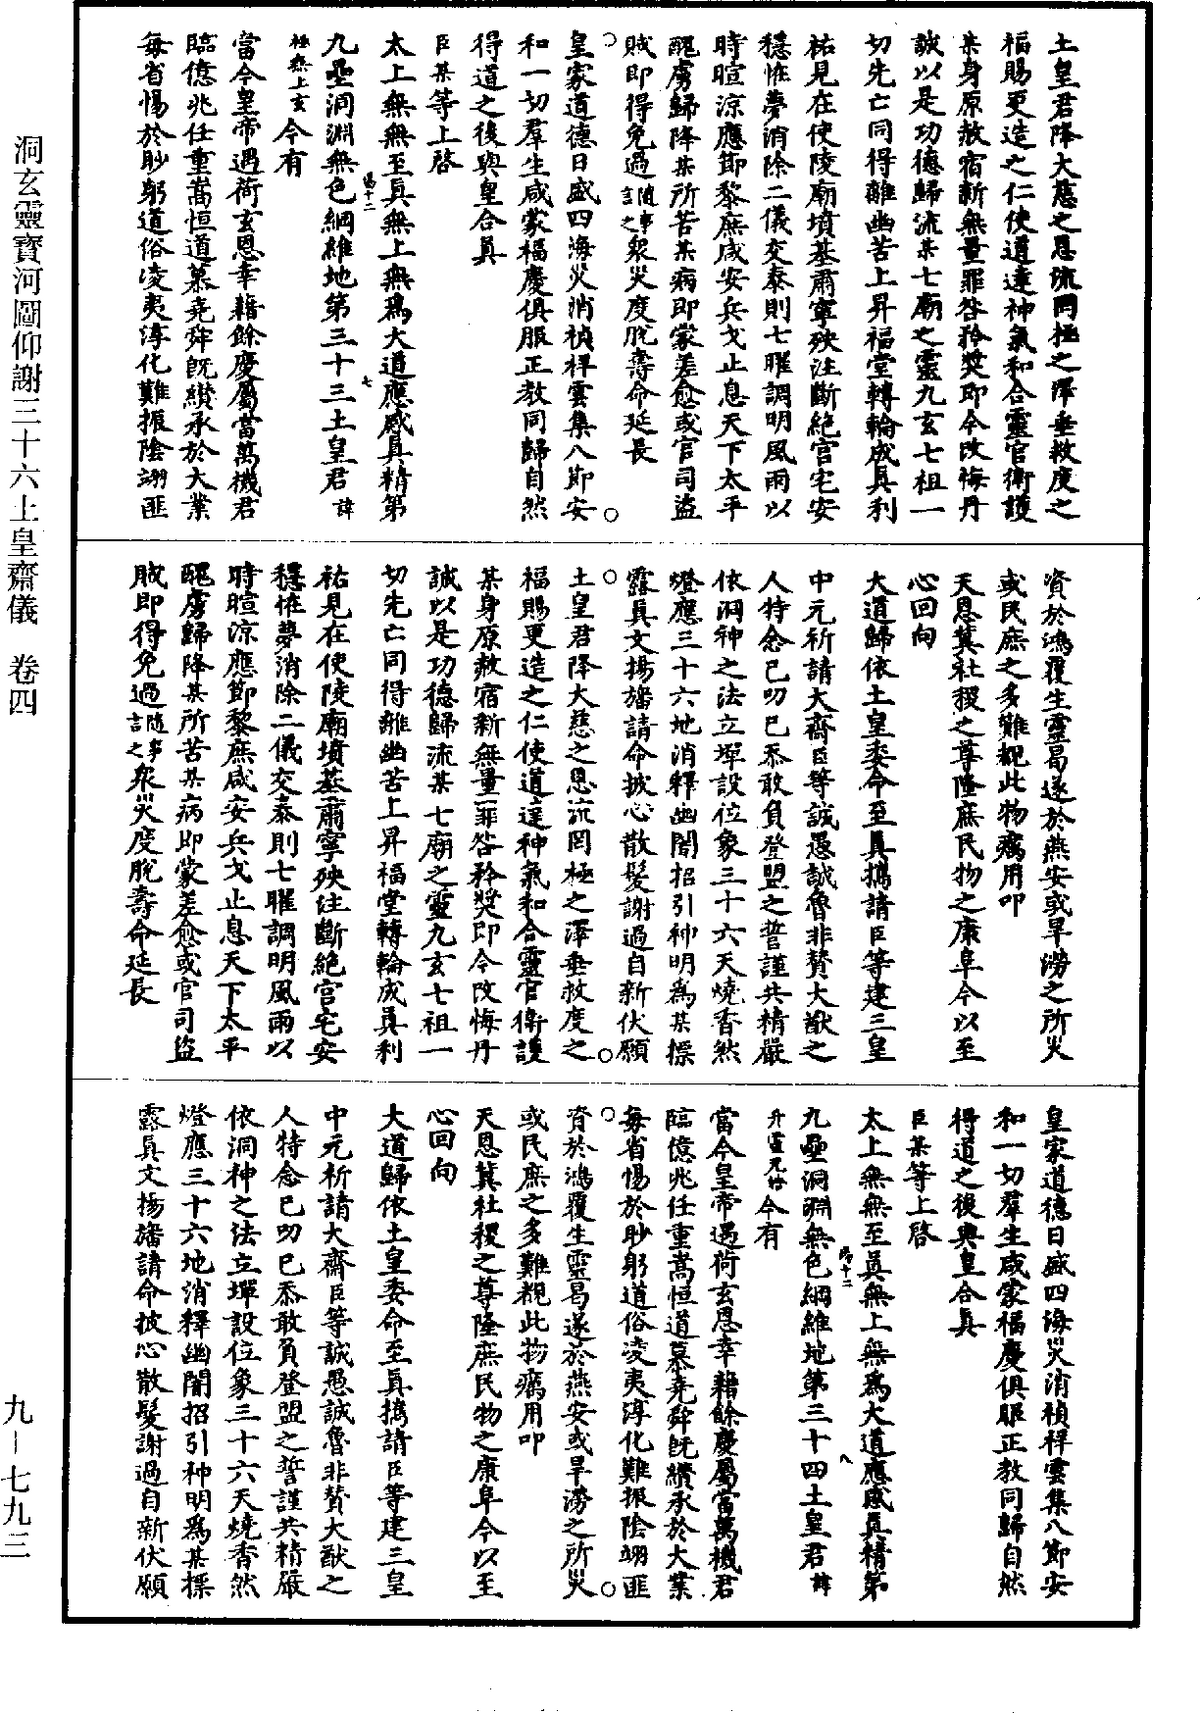 土皇君降大慈之恩流罔極之澤垂救度之
福賜更造之仁使道達神氣和合靈官衛護
某身原赦宿新無量罪咎矜獎即今改悔丹
誠以是功德歸流某七廟之靈九玄七祖一
切先亡同得離幽苦上昇福堂轉輪成真利
祐見在使陵廟墳基肅寧殃注斷絕宫宅安
穩恠夢消除二儀交泰則七曜調明風雨以
時暄凉應節黎庶咸安兵戈止息天下太平
醜虜歸降某所苦某病即蒙差愈或官司盜
賊即得免過隨事言之衆災度脫壽命延長
皇家道德日盛四海災消禎祥雲集八節安
和一切羣生咸蒙福慶俱服正教同歸自然
得道之後與皇合真
臣某等上啓
太上無無至真無上無爲大道應感真精第
九壘洞淵無色綱維地第三十三土皇君諱
極無上玄今有
當今皇帝遇荷玄恩幸藉餘慶屬當萬機君
臨億兆任重嵩恒道慕堯舜旣纘承於大業
每省惕於眇躬道俗凌夷淳化難振陰翊匪
資於鴻覆生靈曷遂於燕安或旱澇之所災
或民庶之多難覩此物癘用叩
天恩冀社稷之尊隆庶民物之康阜今以至
心回向
大道歸依土皇委命至真擕請臣等建三皇
中元祈請大齋臣等誠愚誠魯非贊大猷之
人特念已叨已忝敢負登盟之誓謹共精嚴
依洞神之法立墠設位象三十六天燒香然
燈應三十六地消釋幽闇招引神明爲某摽
露真文揚旛請命披心散髮謝過自新伏願
土皇君降大慈之恩流罔極之澤垂救度之
福賜更造之仁使道達神氣和合靈官衛護
某身原赦宿新無量罪咎矜獎即今改悔丹
誠以是功德歸流某七廟之靈九玄七祖一
切先亡同得離幽苦上昇福堂轉輪成真利
祐見在使陵廟墳基肅寧殃注斷絕宫宅安
穩恠夢消除二儀交泰則七曜調明風雨以
時暄凉應節黎庶咸安兵戈止息天下太平
醜虜歸降某所苦某病即蒙差愈或官司盜
賊即得免過隨事言之衆災度脫壽命延長
皇家道德日盛四海災消禎祥雲集八節安
和一切羣生咸蒙福慶俱服正教同歸自然
得道之後與皇合真
臣某等上啓
太上無無至真無上無爲大道應感真精第
九壘洞淵無色綱維地第三十四土皇君諱
升靈元今有
當今皇帝遇荷玄恩幸藉餘慶屬當萬機君
臨億兆任重嵩恒道慕堯舜旣纘承於大業
每省惕於眇躬道俗凌夷淳化難振陰翊匪
資於鴻覆生靈曷遂於燕安或旱澇之所災
或民庶之多難覩此物癘用叩
天恩冀社稷之尊隆庶民物之康阜今以至
心回向
大道歸依土皇委命至真擕請臣等建三皇
中元祈請大齋臣等誠愚誠魯非贊大猷之
人特念已叨已忝敢負登盟之誓謹共精嚴
依洞神之法立墠設位象三十六天燒香然
燈應三十六地消釋幽闇招引神明爲某摽
露真文揚旛請命披心散髮謝過自新伏願
洞玄靈寶河圖仰謝三十六土皇齋儀　卷四
九－七九三